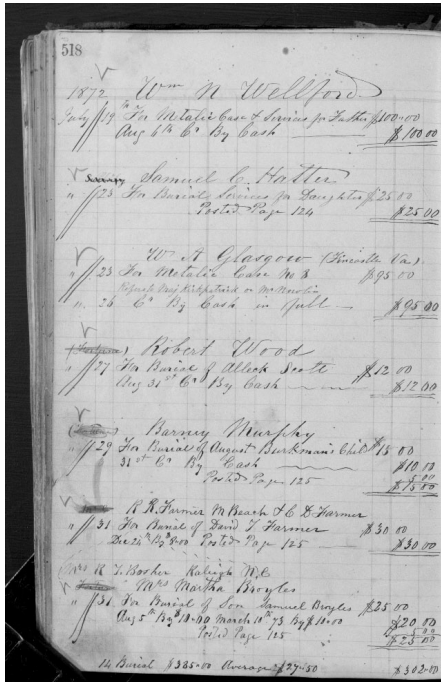 518
1872 Wm N Wellford
July 19th For Metalic Case & Services for Father $100.00
Aug 6th Cr By Cash $100.00
Samuel C. Hatter
" 23 For Burial & Services for Daughter $25.00
Posted Page 124 $25.00
W. A Glasgow (Fincastle Va.)
" 23 For Metalic Case No 8 $95.00
Kirkpatrick or
" 26 Cr By Cash in full $95.00
Robert Wood
" 27 For Burial of Alleck Scott $12.00
Aug 31st Cr By Cash $12.00
Barney Murphy
" 29 For Burial of August Burkman's Child $15.00
31st Cr By Cash $10.00
Posted Page 125 5.00
$15.00
R R. Farmer M Beach & C D Farmer
" 31 For Burial of David T Farmer $30.00
Dec 24th By 8.00 Posted Page 125 $30.00
Mrs R T. Bosher Raleigh N.C
Mrs Martha Broyles
" 31 For Burial of Son Samuel Broyles $25.00
Aug 5th By 10.00 March 10th 73 By $10.00 $20.00
Posted Page 125 5.00
$25.00
14 Burial $385.00 Average $27.50 $302.00